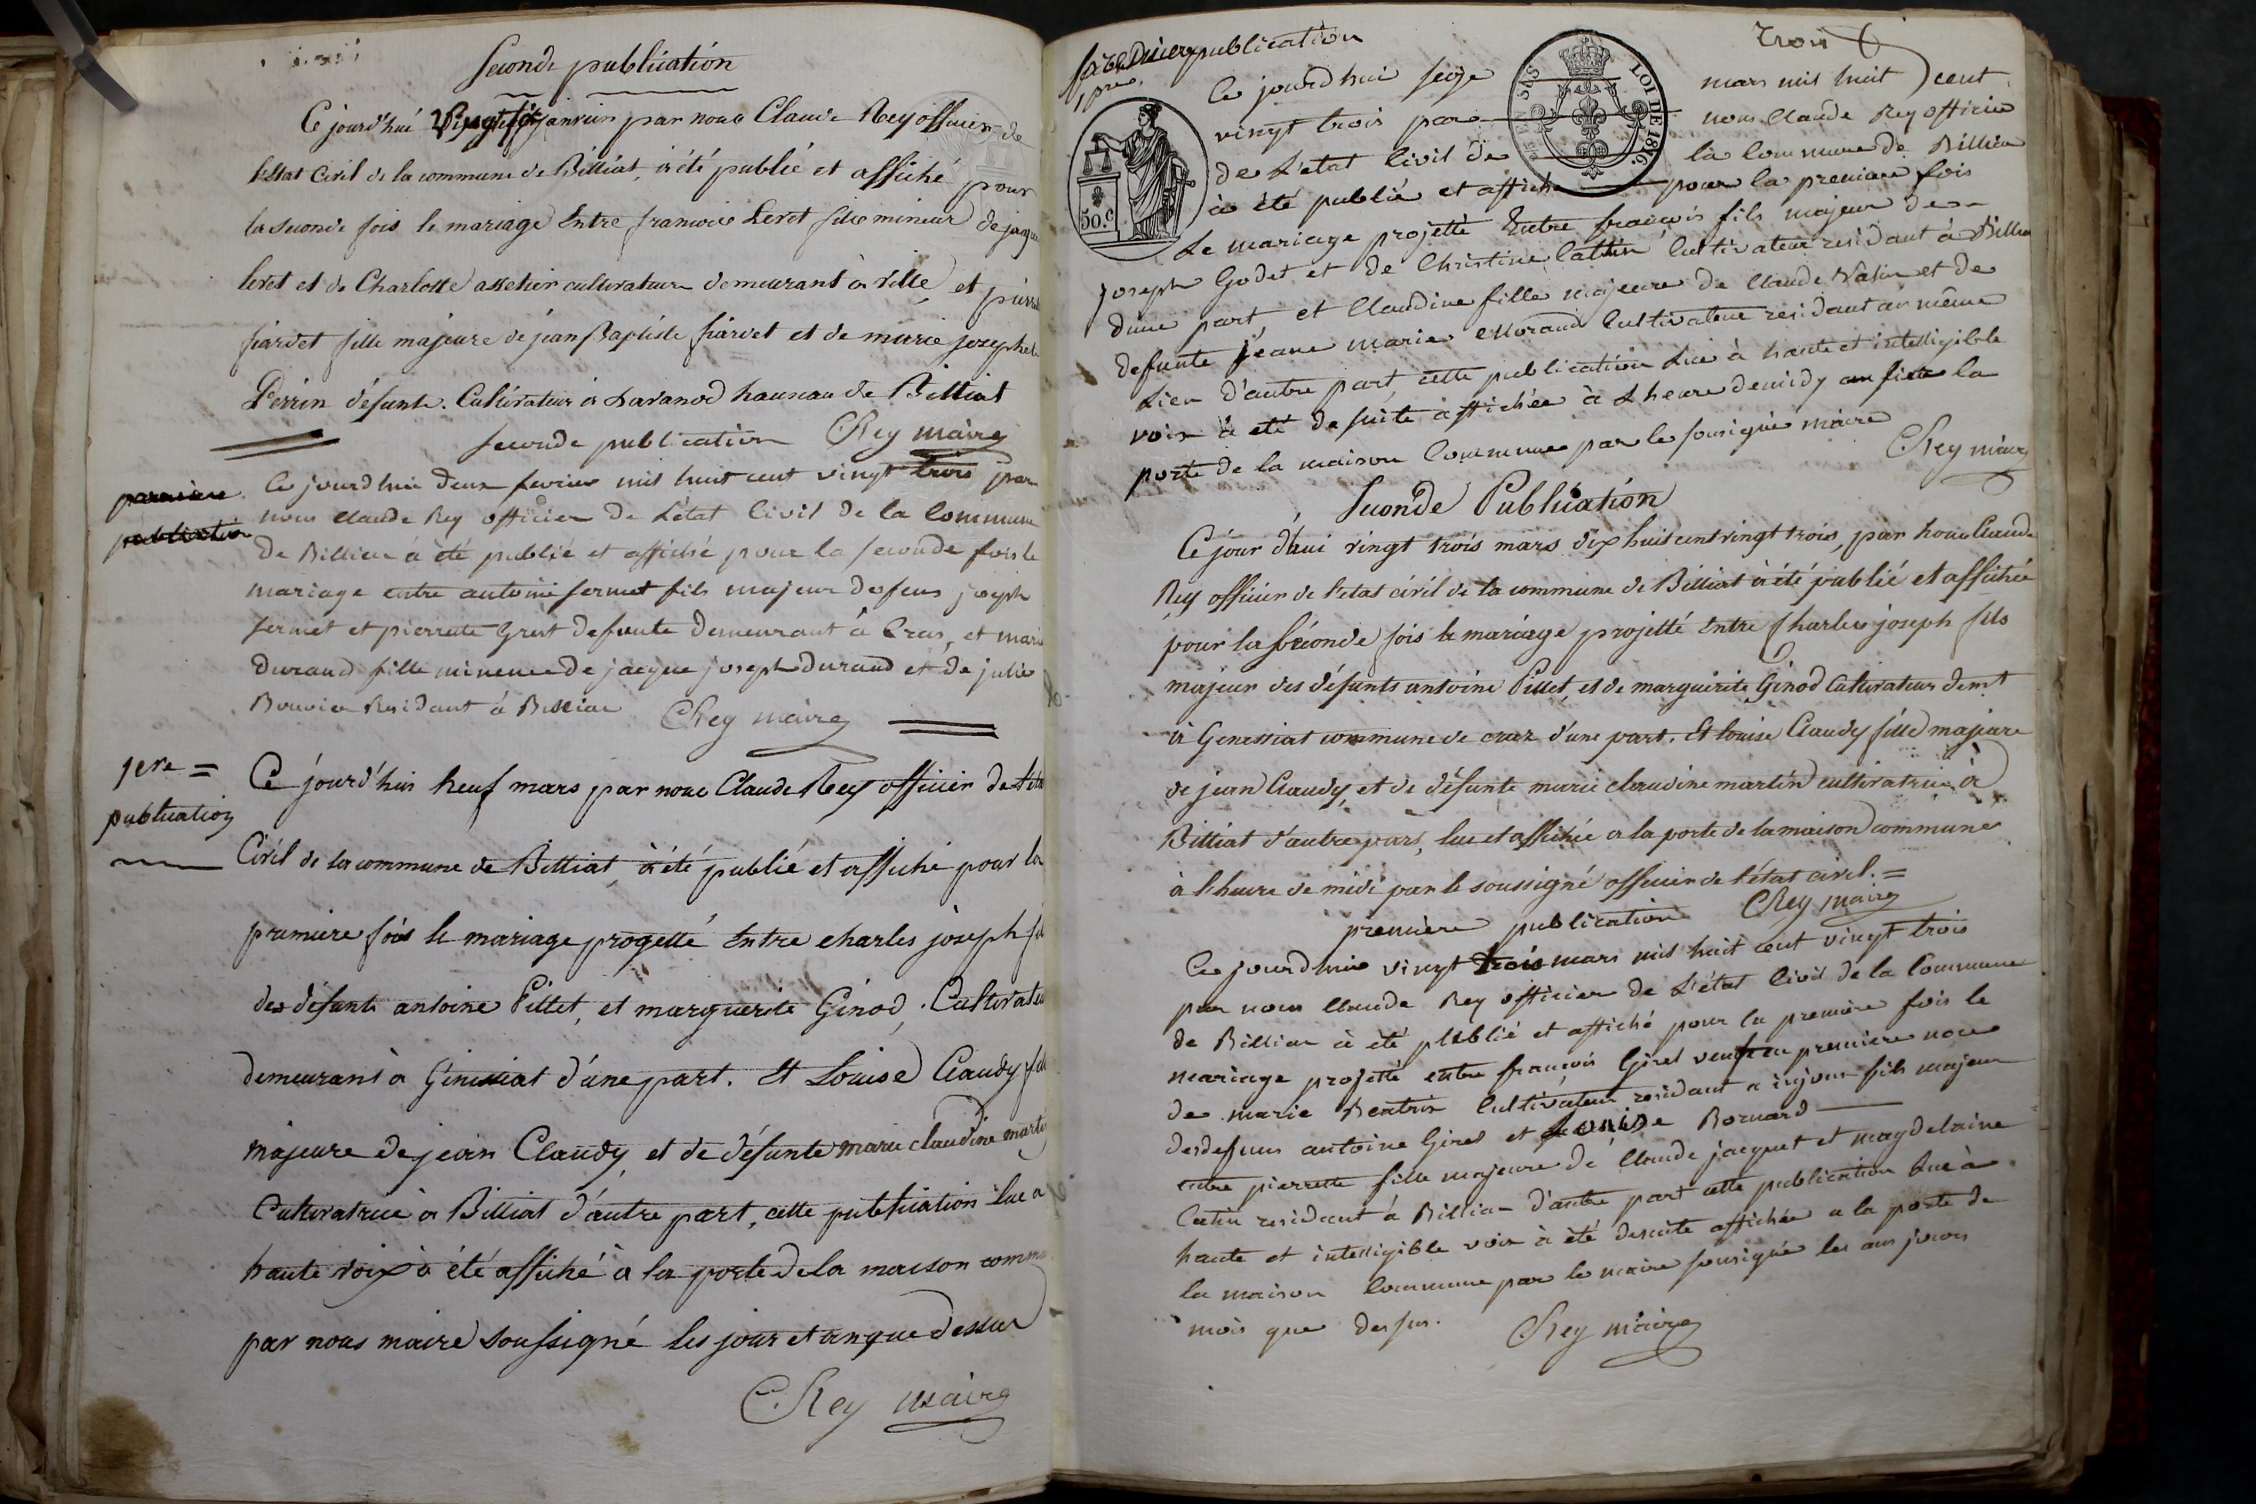 Seconde publication
Ce jourd'hui Vingt six janvier par nous Claude Rey officier de
l'Etat Civil de la commune de Billiat, à été publié et affiché pour
la seconde fois le mariage Entre francois Leret fils mineur de jaque
leret et de Charlotte assetier cultivateur demeurant à ville, et pierrette
fiardet fille majeure de jean Baptiste fiardet et de marie josephete
Perrin défunte. Cultivateur à Davanod hameau de Billiat
seconde publication CRey maire
premiere publication
Ce jourd hui deux fevrier mil huit cent vingt trois par
nous Claude Rey officier de L'état Civil de la Commune
de Billiat à été publié et affiché pour la seconde fois le
mariage entre antoine fermet fils majeur defeus joseph
fermet et pierrette Grest defunte demeurant à Cras, et marie
durand fille mineure de jacque joseph durand et de julie
Bouvier Residant à Billiat CRey maire
1ere =
publication
Ce jourd'hui neuf mars par nous Claude Rey officier de l'état
Civil de la commune de Billiat, à été publié et affiché pour la
premiere fois le mariage progetté Entre charles joseph fils
des défunts antoine Pittet, et marguerite Ginod, Cultivateur
demeurant à Ginissiat d'une part. Et Louise Claudy fille
majeure de jean Claudy, et de défunte marie claudine martin
Cultivatrice à Billiat d'autre part, cette publication lue a
haute voix à été affiché à la porte de la maison commune
par nous maire soussigné les jour et an que dessus
CRey maire
trois
publication
1ere
50.c
LOI DE 1816.
Ce jourd hui seize mars mil huit cent
vingt trois par nous Claude Rey officier
de L'etat Civil de la Commune de Billiat
à été publié et affiché pour la premiere fois
Le mariage projetté Entre francois fils majeur de
joseph Godet et de Christine Cattin Cultivateur residant à Billiat
dune part et Claudine fille majeure de Claude Vasin et de
defunte jeane marie Morand Cultivateur residant au même
Lieu d'autre part cette publication Lue à haute et intelligible
voix à eté de suite affichée à L heure de midy la
porte de la maison Commune par le sousigné maire
CRey maire
Seconde Publication
Ce jour d'hui vingt trois mars dix huit cent vingt trois, par nous Claude
Rey officier de l'etat civil de la commune de Billiat à été publié et affichée
pour la seconde fois le mariage projetté Entre Charles joseph fils
majeur des défunts antoine Pittet, et de marguerite Ginod Cultivateur demt
à Genissiat commune de craz d'une part. Et louise Claudy fille majeure
de jean Claudy, et de défunte marie claudine martin cultivatrice à
Billiat d'autre part, lue et affichée a la porte de la maison commune
à l'heure de midi par le soussigné officier de l'état civil. =
premiere publication CRey maire
Ce jourd hui vingt trois mars mil huit cent vingt trois
par nous Claude Rey officier de L'état Civil de la Commune
de Billiat à été publié et affiché pour la premiere fois le
mariage projetté entre francois Girel veuf en premiere noce
de marie Beatrix Cultivateur residant a injoux fils majeur
desdefuns antoine Girel et Louise Bornard
entre pierrette fille majeure de Claude jacquet et magdelaine
Catin residant à Billiat d'autre part cette publication Lue à
haute et intelligible voix à été desuite affichée a la porte de
la maison Commune par le maire sousigné les ans jours
mois que dessus. CRey maire